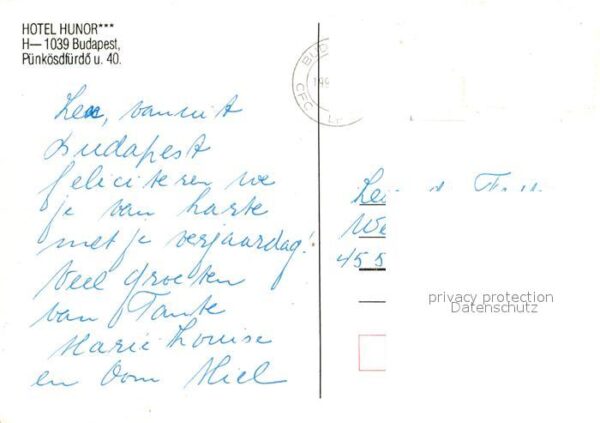 HOTEL HUNOR***
H— 1039 Budapest,
Pünkösdfürdő u. 40.
vanuit
Budapest
feliciteren we
je van harte
met je verjaardag!
Veel groeten
van Tante
Marie Louise
en Oom Miel
BUD
CFC
We
455
privacy protection
Datenschutz